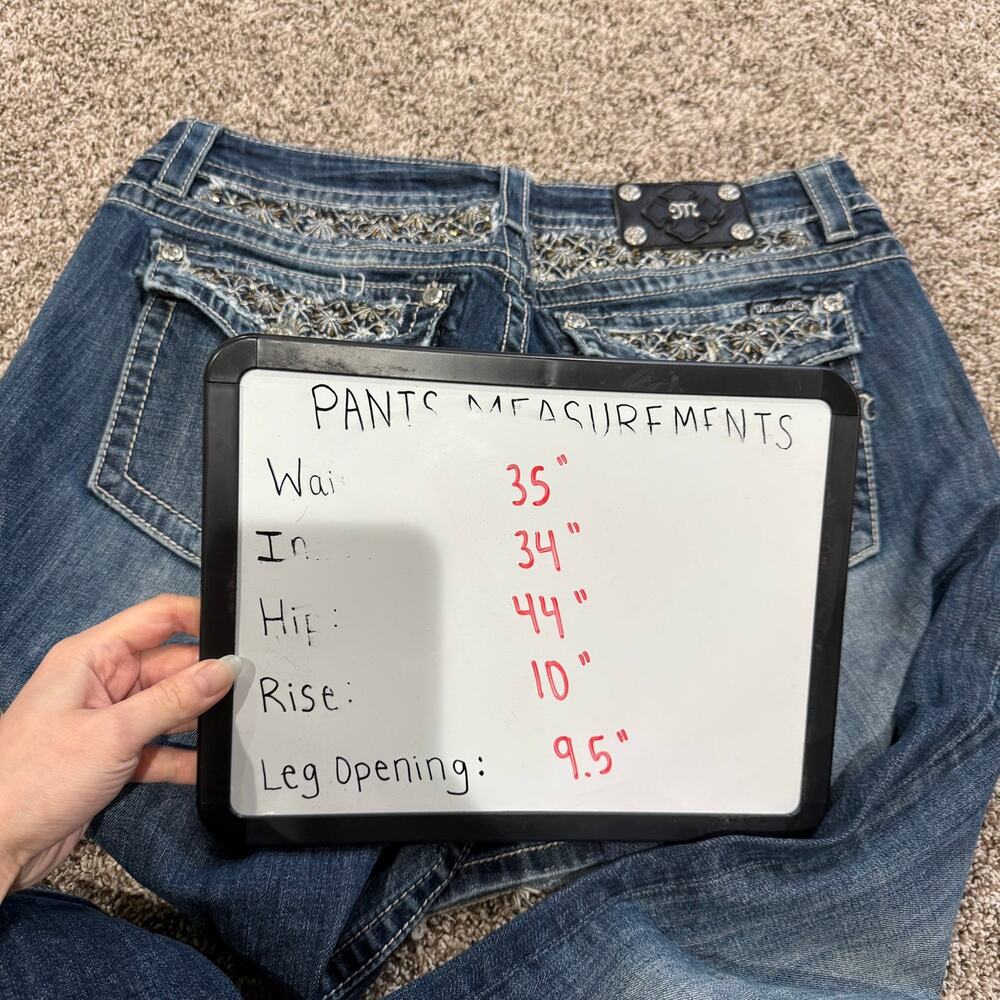 PANTS MEASUREMENTS
Wai 35"
In 34"
Hip: 44"
Rise: 10"
Leg Opening: 9.5"